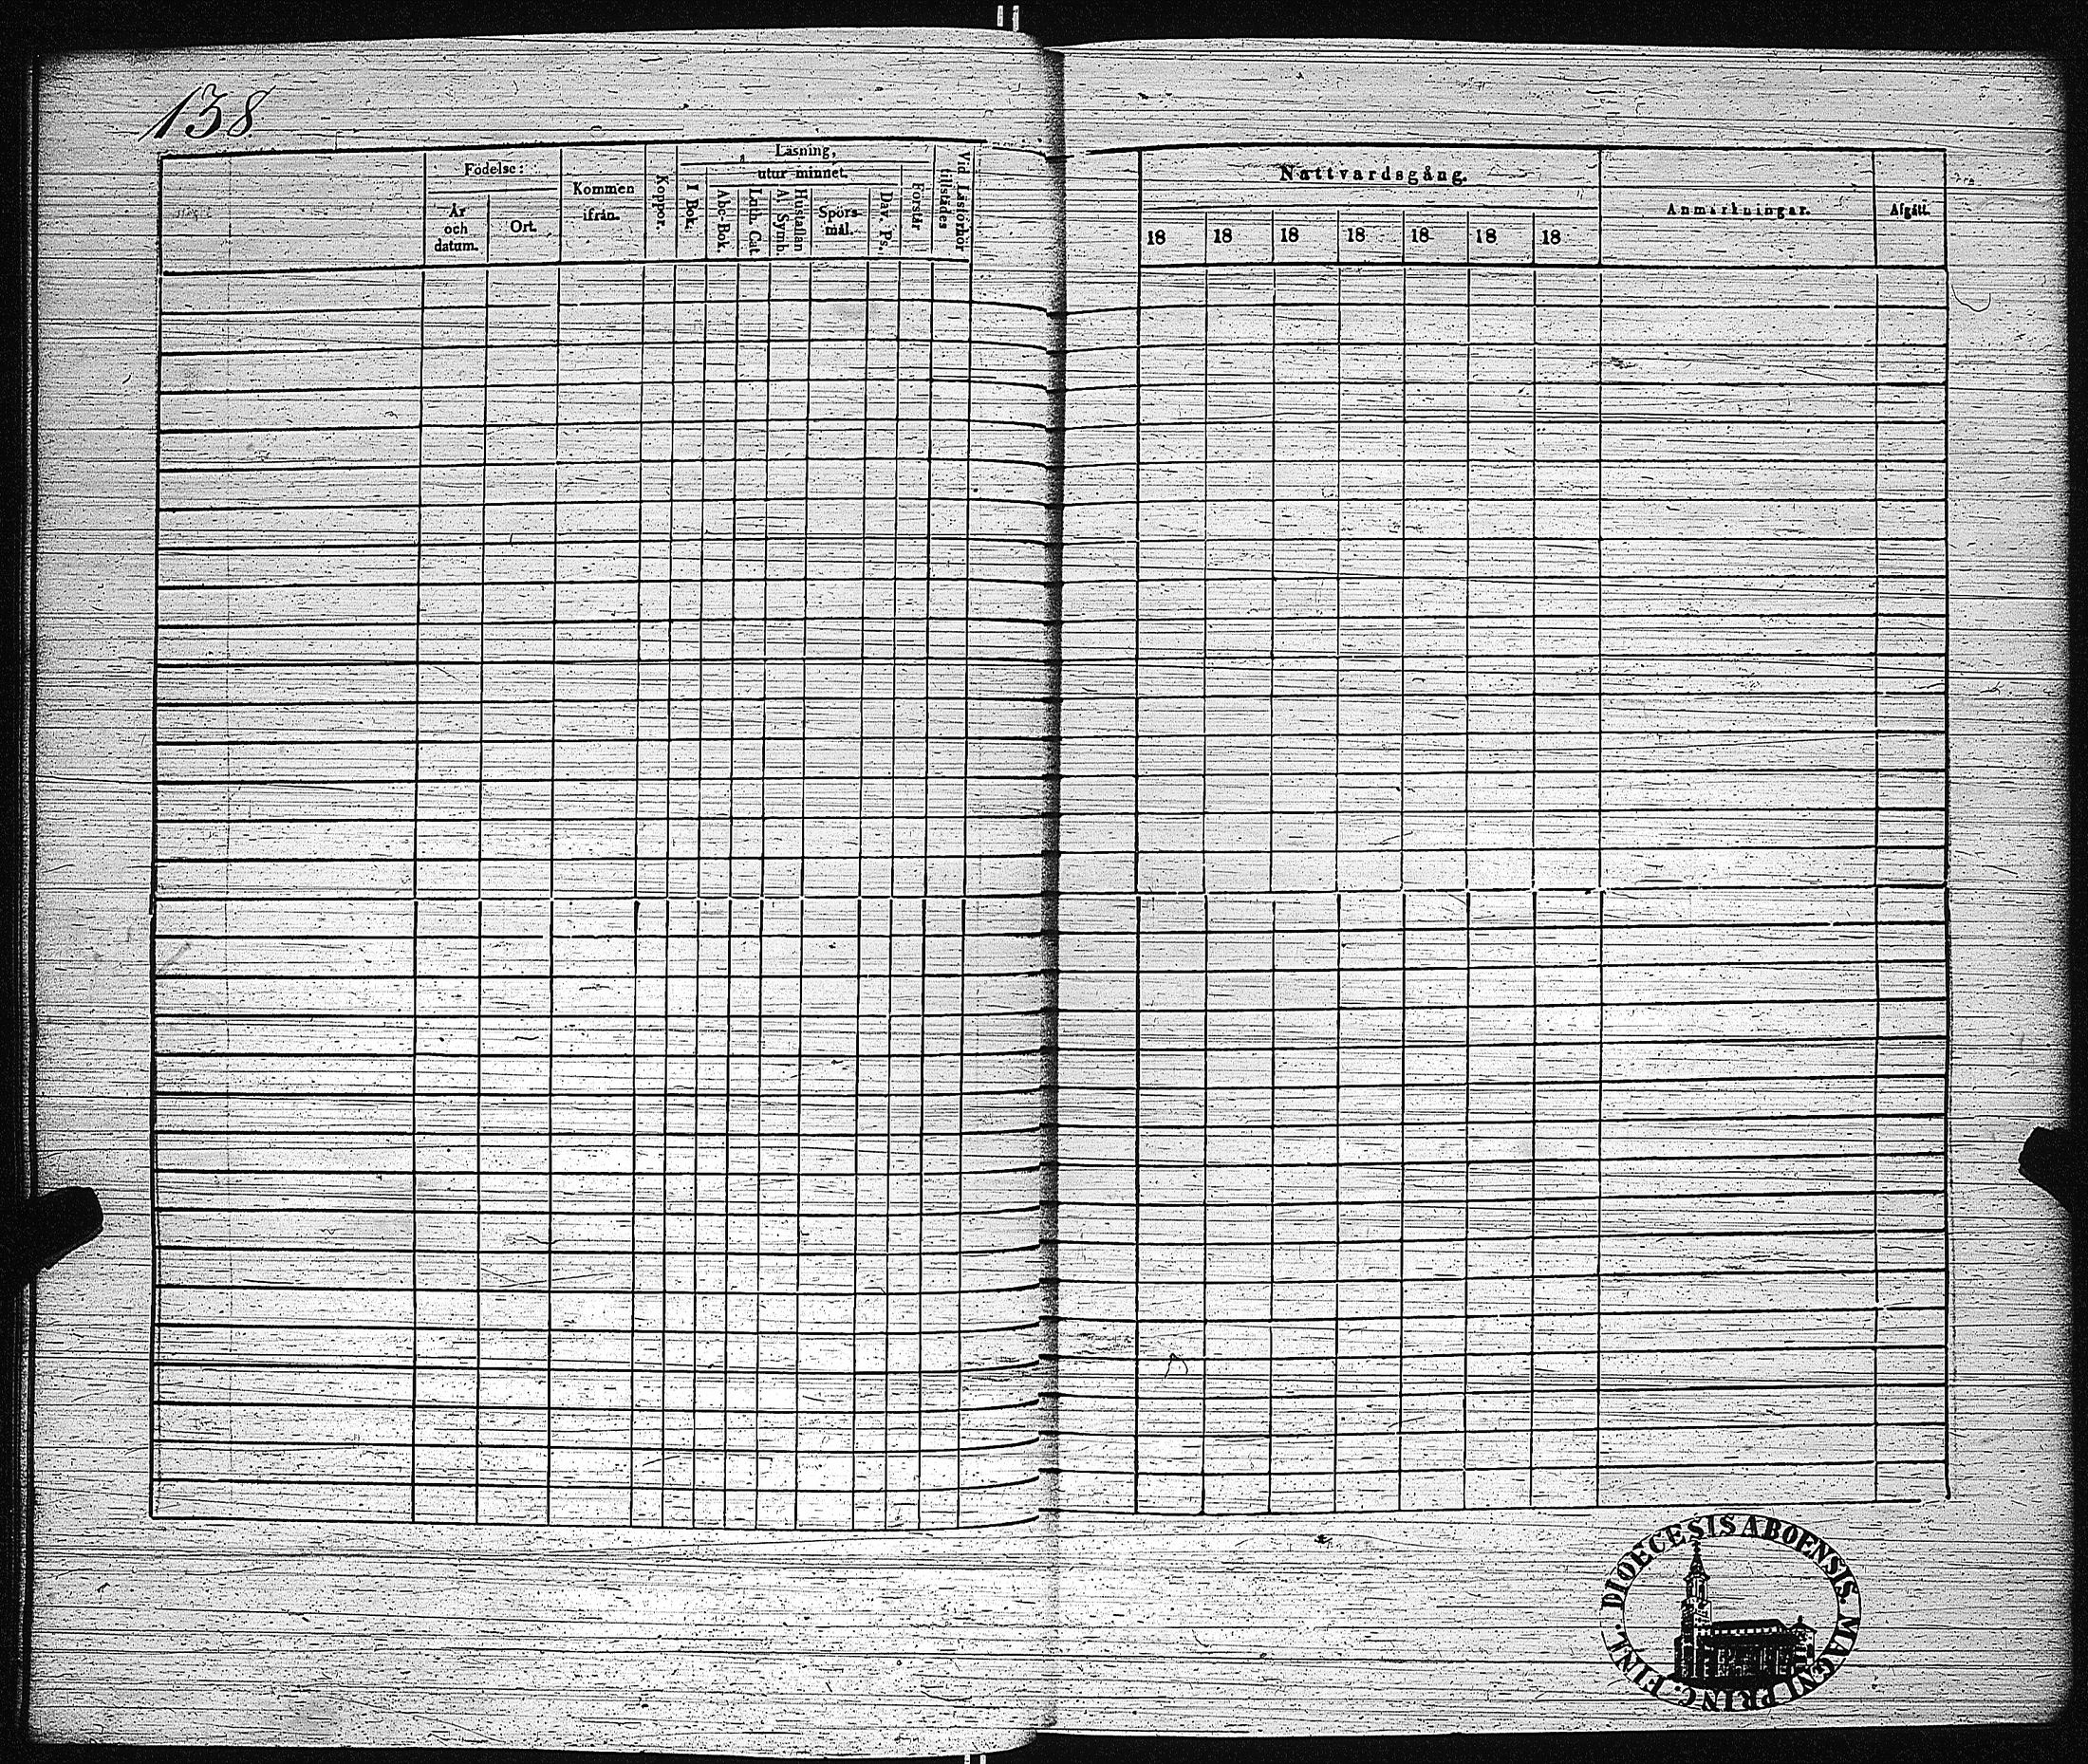 138
Födelse:
År
och
datum.
Ort.
Kommen
ifrån.
Koppor.
Läsning,
utur minnet.
I Bok.
Abc-Bok.
Luth. Cat.
A. Symb.
Hustaflan
Spörs-
mål.
Dav. Ps.
Förstår
Vid Läsförhör
tillstädes
Nattvardsgång.
18 18 18 18 18 18 18
Anmärkningar.
Afgått.
DIOECESIS ABOENSIS. MAGNI PRINC. FINL.